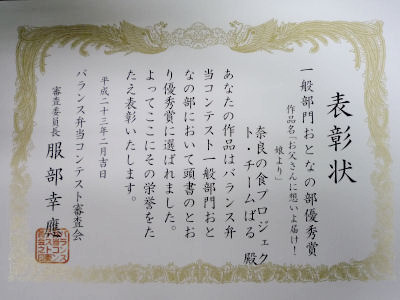 表彰状
一般部門おとなの部優秀賞
作品名「お父さんに想いよ届け!
娘より」
奈良の食プロジェク
ト・チームぱる 殿
あなたの作品はバランス弁
当コンテスト一般部門おと
なの部において頭書のとお
り優秀賞に選ばれました。
よってここにその栄誉をた
たえ表彰いたします。
平成二十三年二月吉日
バランス弁当コンテスト審査会
審査委員長 服部幸應